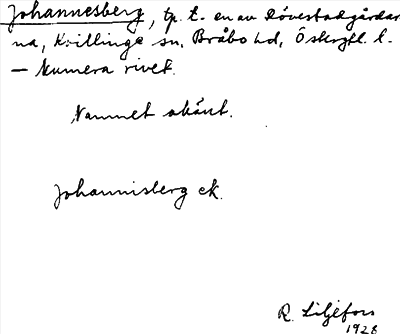 Johannesberg, tp. t. en av Rövestadgårdar
na, Kvillinge sn, Bråbo hd, Östergtl. l.
— Numera rivet.
Namnet okänt.
Johannisberg ek.
R. Liljefors
1928